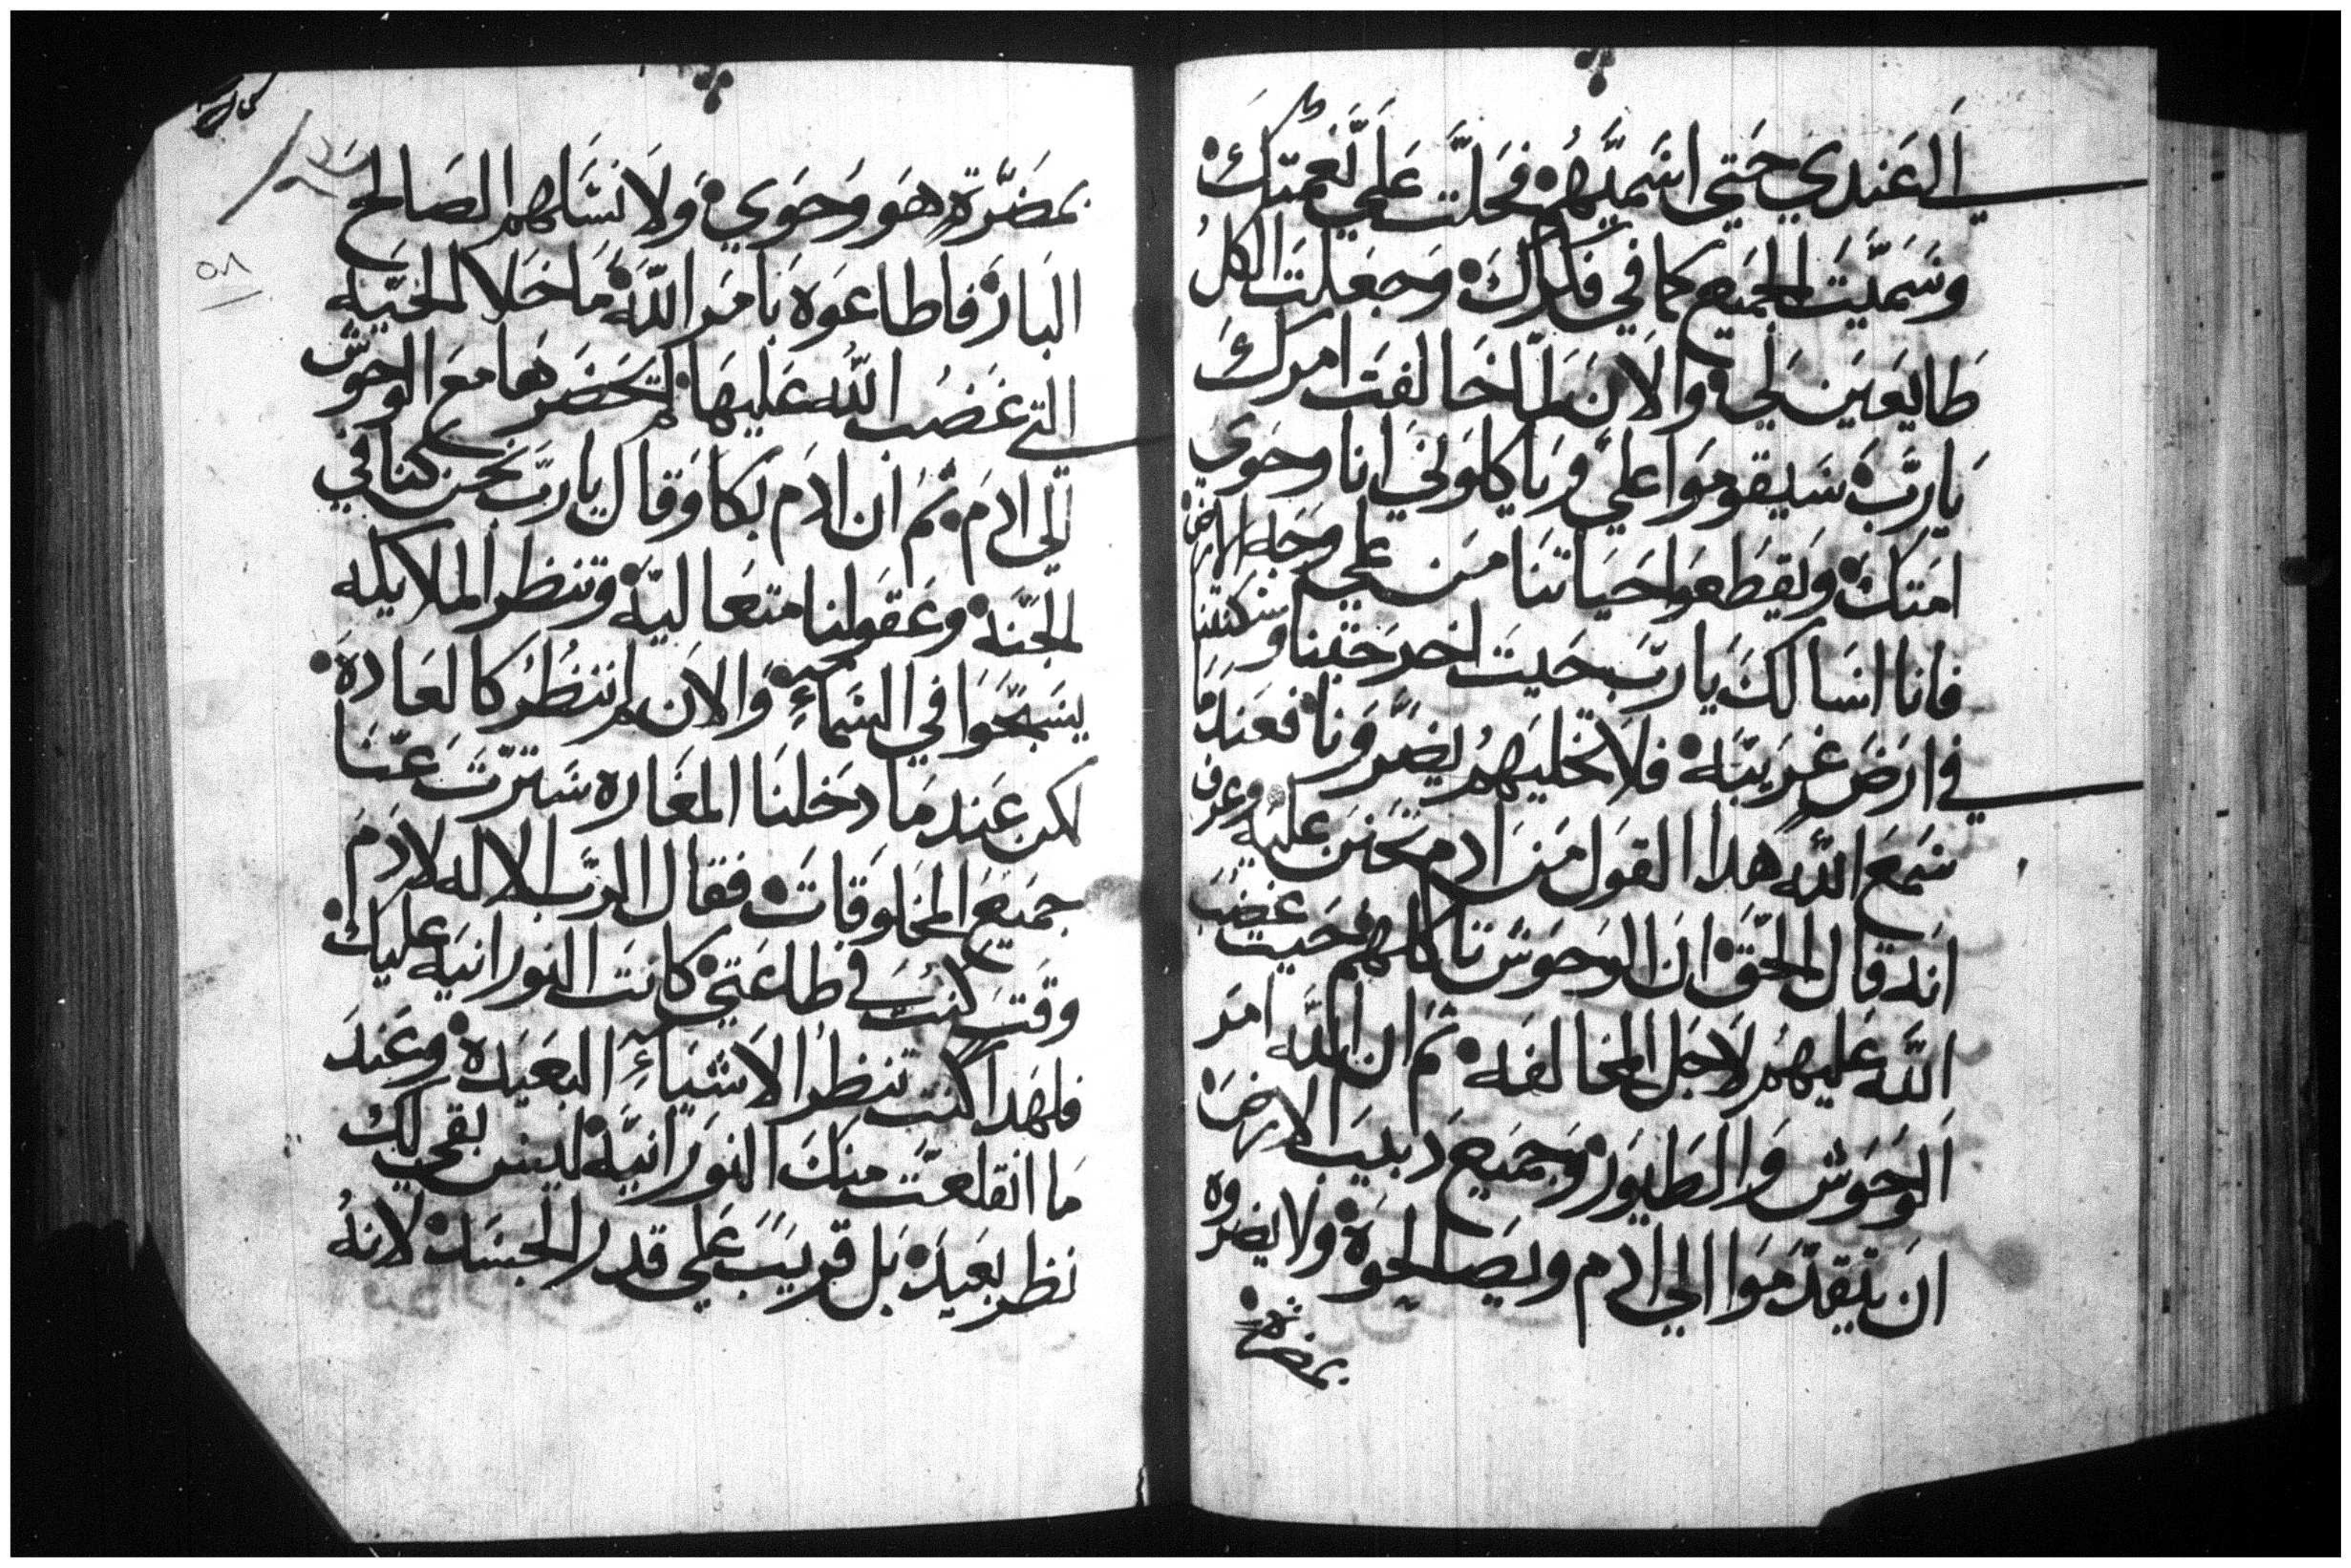 الي عندي حتي اسميهم فحلت علي نعمتك
وسميت الجميع كما في فكرك وجعلت الكل
طايعين لي والان لما خالفت امرك
يارب سيقوموا علي ويأكلوني انا وحوي
امتك ويقطعوا حياتنا من علي وجه الارض
فانا اسالك يارب حيت اخرجتنا وسكنتنا
في ارض غريبه فلا تخليهم يضرونا فعندما
سمع الله هدا القول من ادم تحنن عليه وعرف
انه قال الحق ان الوحوش تاكلهم فحيت غضب
الله عليهم لاجل المخالفه ثم ان الله امر
الوحوش والطيور وجميع دبيب الارض
ان يتقدموا الي ادم ويصالحوه ولا يضروه
بمضرة
بمضرة هو وحوي ولا نسلهم الصالح
البار فاطاعوه بامر الله ما خلا الحيه
التي غضب الله عليها لم تحضرها مع الوحوش
الي ادم ثم ان ادم بكا وقال يارب نحن كنا في
الجنه وعقولنا متعاليه وتنظر الملايكه
يسبحوا في السماء والان لم ننظر كالعاده
لكن عندما دخلنا المغاره سترت عنا
جميع المخلوقات فقال الرب الاله لادم
وقت كنت في طاعتي كانت النورانيه عليك
فلهدا كنت تنظر الاشياء البعيده وعند
ما انقلعت منك النورانيه ليس بقي لك
نظر بعيد بل قريب علي قدر الجسد لانه
٥٨